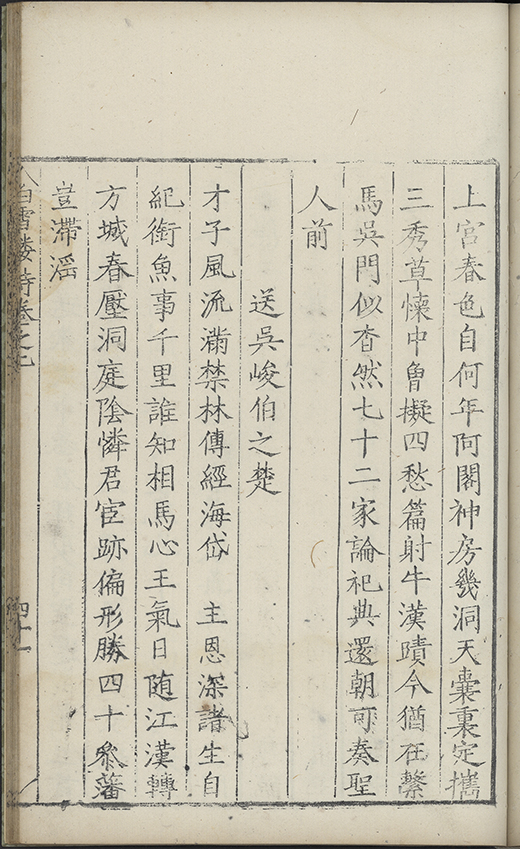 上宮春色自何年阿閣神房幾洞天囊裏定㩦
三秀草懷中曾擬四愁篇射牛漢蹟今猶在繫
馬吳門似杳然七十二家論祀典還朝可奏聖
人前
送吳峻伯之楚
才子風流滿禁林傳經海岱　主恩深諸生自
紀銜魚事千里誰知相馬心王氣日随江漢轉
方城春壓洞庭陰憐君宦跡偏形勝四十叅藩
豈滯滛
白雪樓詩卷之七
四十一